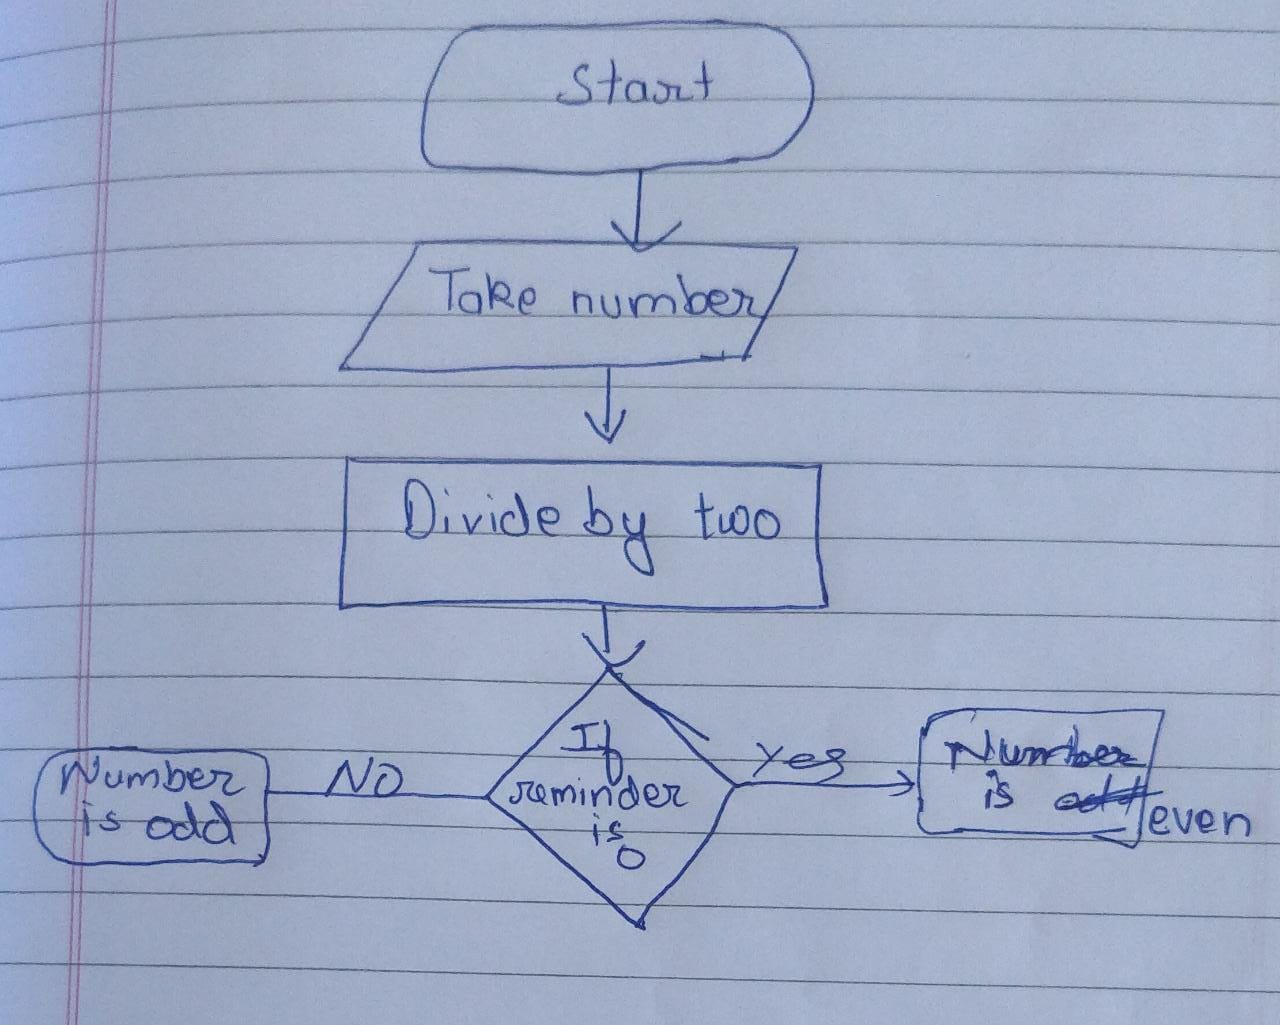 Start
Take number
Divide by two
If
reminder
is
0
NO
Number
is odd
Yes
Number
is even